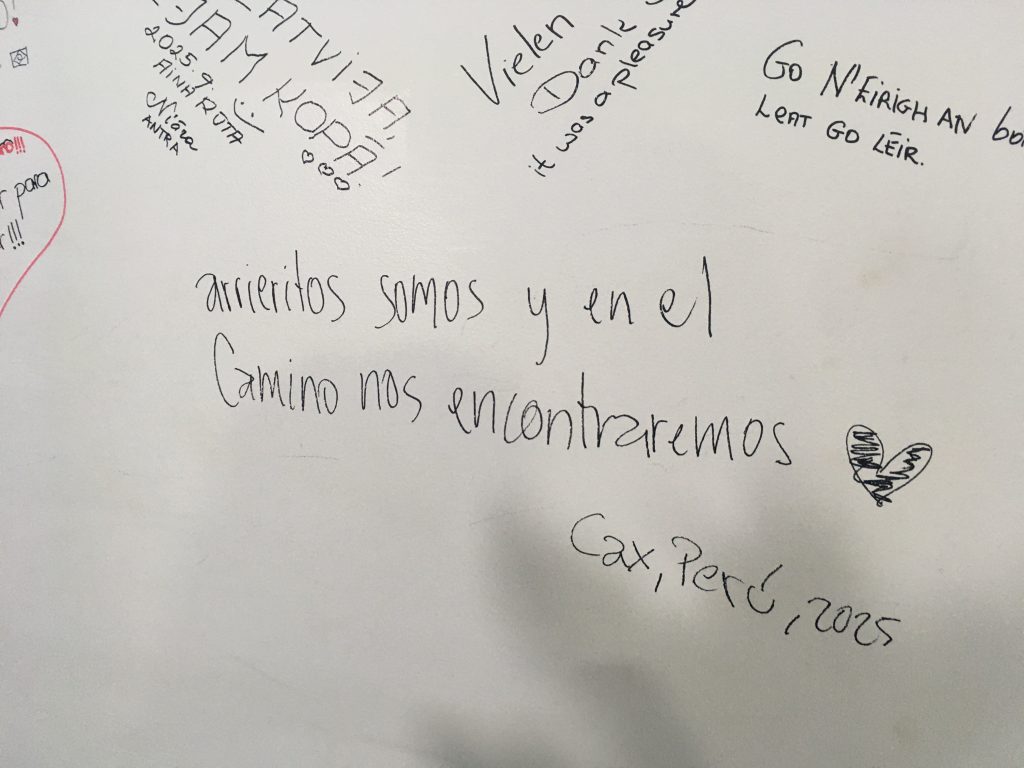 LATVIJA,
EJAM KOPĀ!
2025.9.
AINA RUTA
ANTRA
Vielen
Dank
it was a pleasure
GO N'EIRIGH AN
LEAT GO LÉIR.
!!!
para
!!!
arrieritos somos y en el
Camino nos encontraremos
Cax, Perú, 2025